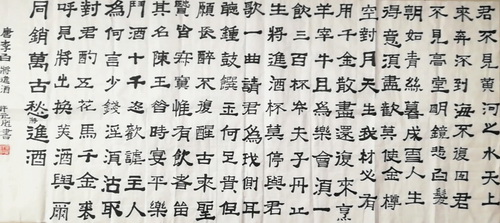 君不見黃河之水天上
來奔流到海不復回君
不見高堂明鏡悲白髮
朝如青絲暮成雪人生
得意須盡歡莫使金樽
空對月天生我材必有
用千金散盡還復來烹
羊宰牛且為樂會須一
飲三百杯岑夫子丹丘
生將進酒杯莫停與君
歌一曲請君為我側耳
聽鐘鼓饌玉何足貴但
願長醉不復醒古來聖
賢皆寂寞惟有飲者留
其名陳王昔時宴平樂
斗酒十千恣歡謔主人
為何言少錢徑須沽取
對君酌五花馬千金裘
呼兒將出換美酒與爾
同銷萬古愁將進酒
唐李白將進酒 書